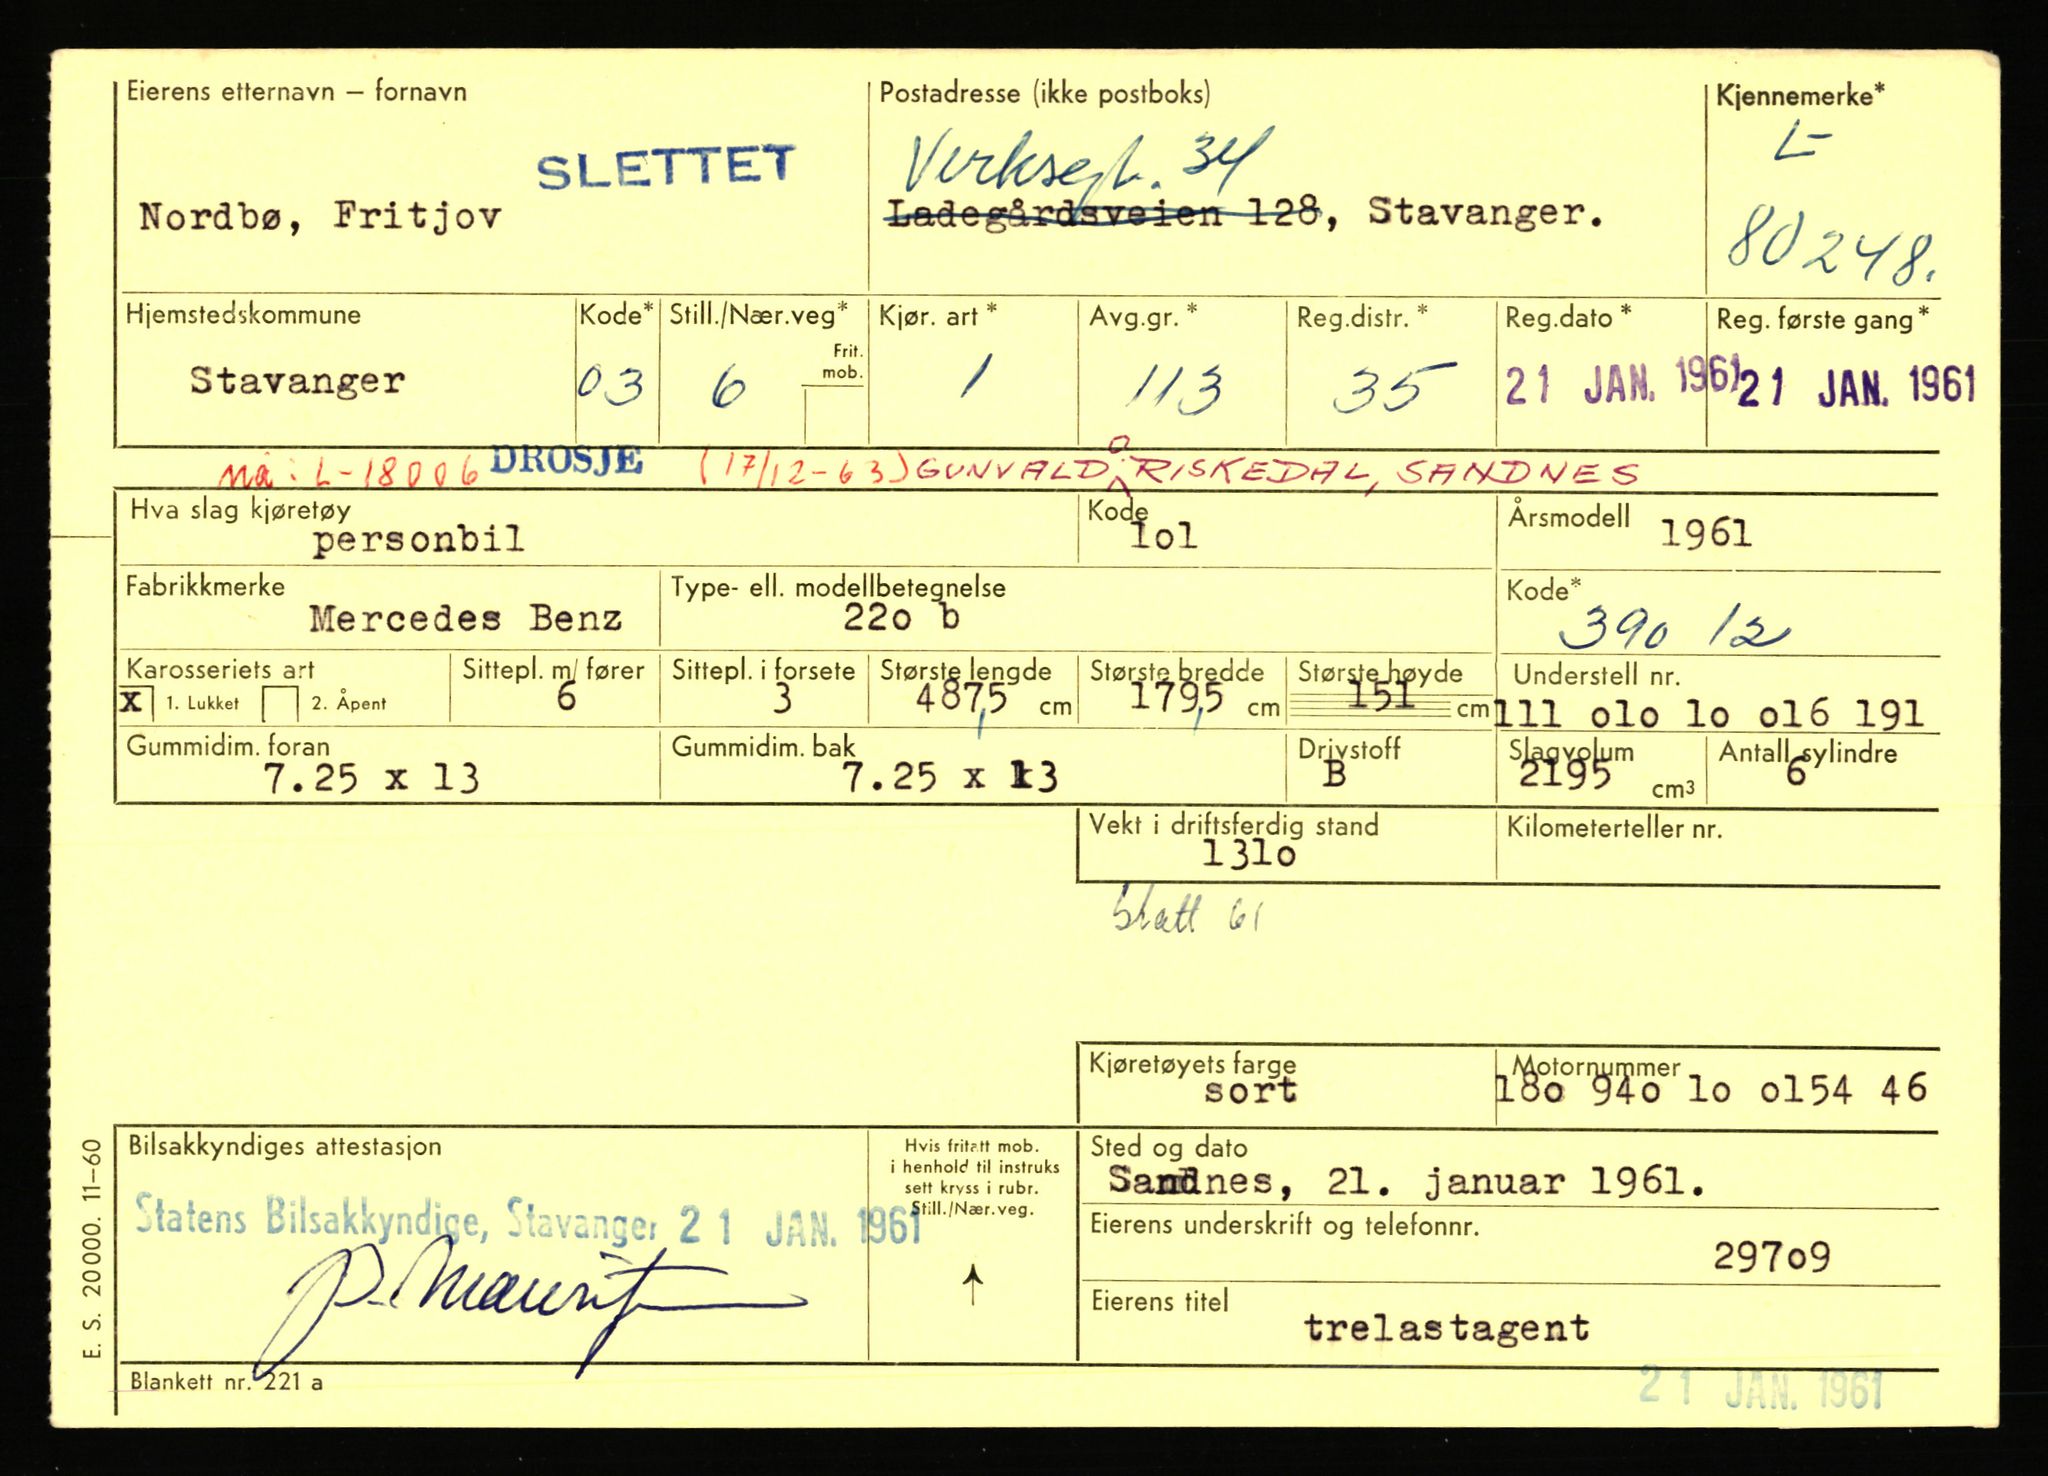 Eierens etternavn – fornavn
Postadresse (ikke postboks)
Kjennemerke*
SLETTET
Verksgt. 34
L-
Nordbø, Fritjov
Ladegårdsveien 128, Stavanger.
80248.
Hjemstedskommune
Kode*
Still./Nær.veg*
Frit. mob.
Kjør. art *
Avg.gr. *
Reg.distr. *
Reg.dato *
Reg. første gang *
Stavanger
03
6
1
113
35
21 JAN. 1961
21 JAN. 1961
nå: L-18006 DROSJE (17/12-63) GUNVALD Å. RISKEDAL, SANDNES
Hva slag kjøretøy
personbil
Kode
lol
Årsmodell
1961
Fabrikkmerke
Mercedes Benz
Type- ell. modellbetegnelse
22o b
Kode*
390 12
Karosseriets art
x 1. Lukket 2. Åpent
Sittepl. m/ fører
6
Sittepl. i forsete
3
Største lengde
487,5 cm
Største bredde
179,5 cm
Største høyde
151 cm
Understell nr.
111 olo lo ol6 191
Gummidim. foran
7.25 x 13
Gummidim. bak
7.25 x 13
Drivstoff
B
Slagvolum
2195 cm³
Antall sylindre
6
Vekt i driftsferdig stand
131o
Kilometerteller nr.
61
Kjøretøyets farge
sort
Motornummer
18o 94o lo ol54 46
Bilsakkyndiges attestasjon
Statens Bilsakkyndige, Stavanger 21 JAN. 1961
Hvis fritatt mob.
i henhold til instruks
sett kryss i rubr.
Still./Nær.veg.
Sted og dato
Sandnes, 21. januar 1961.
Eierens underskrift og telefonnr.
297o9
Eierens titel
trelastagent
E. S. 20000. 11–60
Blankett nr. 221 a
21 JAN. 1961